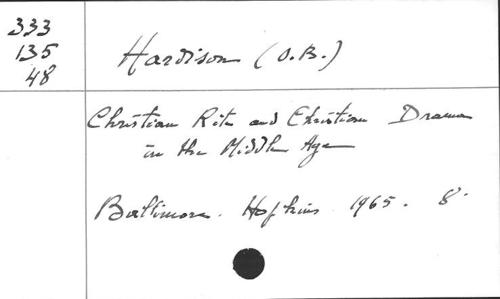 333
135
48
Hardison (O.B.)
Christian Rite and Christian Drama
in the Middle Age
Baltimore. Hopkins 1965. 8°.